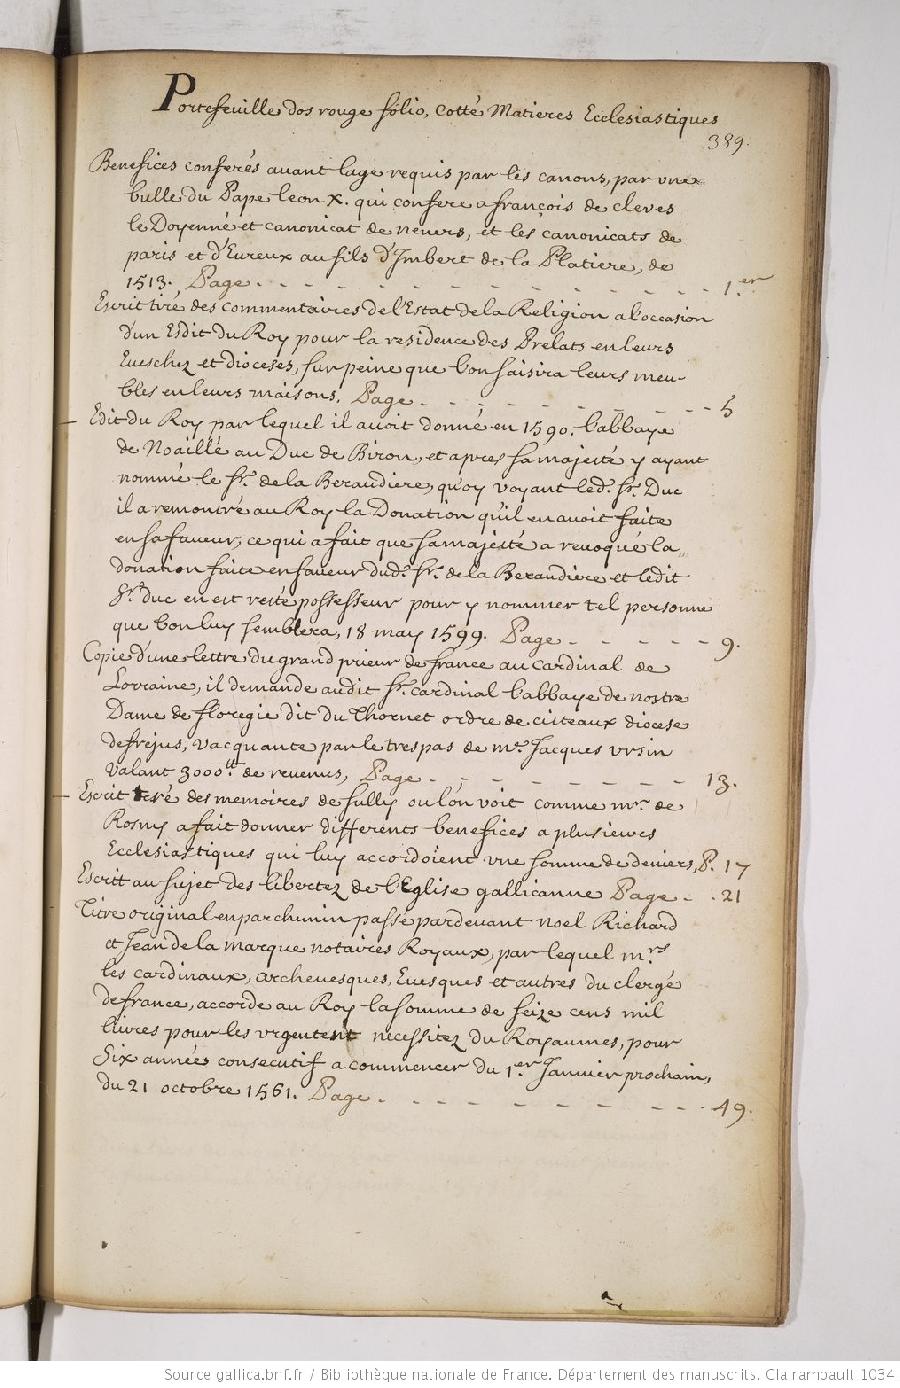 Portefeuille dos rouge folio, cotté Matieres Ecclesiastiques
389.
Benefices conferés auant l'age requis par les canons, par vne
bulle du Pape leon X. qui confere a françois de cleves
le Doyenné et canonicat de neuers, et les canonicats de
paris et d'Eureux au fils d'Imbert de la Platiere, de
1513. Page . . . 1.er
Escrit tiré des commentaires de l'Estat de la Religion a l'occasion
d'un Esdit du Roy pour la residence des Prelats en leurs
Eueschez et dioceses, sur peine que l'on saisira leurs meu-
bles en leurs maisons. Page . . . 5
Edit du Roy par lequel il auoit donné en 1590. l'abbaye
de Noaillé au Duc de Biron, et apres sa majesté y ayant
nommé le Sr. de la Beraudiere, quoy voyant led. Sr. Duc
il a remontré au Roy la Donation qu'il en auoit faite
en sa faueur, ce qui a fait que sa majesté a reuoqué la
donation faite en faueur dud. Sr. de la Beraudiere et ledit
Sr. duc en est resté possesseur pour y nommer tel personne
que bon luy semblera, 18 may 1599. Page . . . 9.
Copie d'une lettre du grand prieur de france au cardinal de
Lorraine, il demande audit Sr. cardinal l'abbaye de nostre
Dame de floregie dit du Thornet ordre de citeaux diocese
de frejus, vacquante par le trespas de mre. Jacques vrsin
valant 3000tt de reuenus, Page . . . 13.
Escrit tiré des memoires de sully ou l'on voit comme mr. de
Rosny a fait donner differents benefices a plusieurs
Ecclesiastiques qui luy accordoient vne somme de deniers, P. 17
Escrit au sujet des libertez de l'Eglise gallicanne Page . . 21
Titre original en parchemin passé pardeuant noel Richard
et Jean de la marque notaires Royaux, par lequel mrs.
les cardinaux, archeuesques, Euesques et autres du clergé
de france, accorde au Roy la somme de seize cens mil
liures pour les vrgentent necessitez du Royaumes, pour
Six année consecutif a commencer du 1.er Januier prochain,
du 21 octobre 1561. Page . . . 49.
Source gallica.bnf.fr / Bibliothèque nationale de France. Département des manuscrits. Clairambault 1034